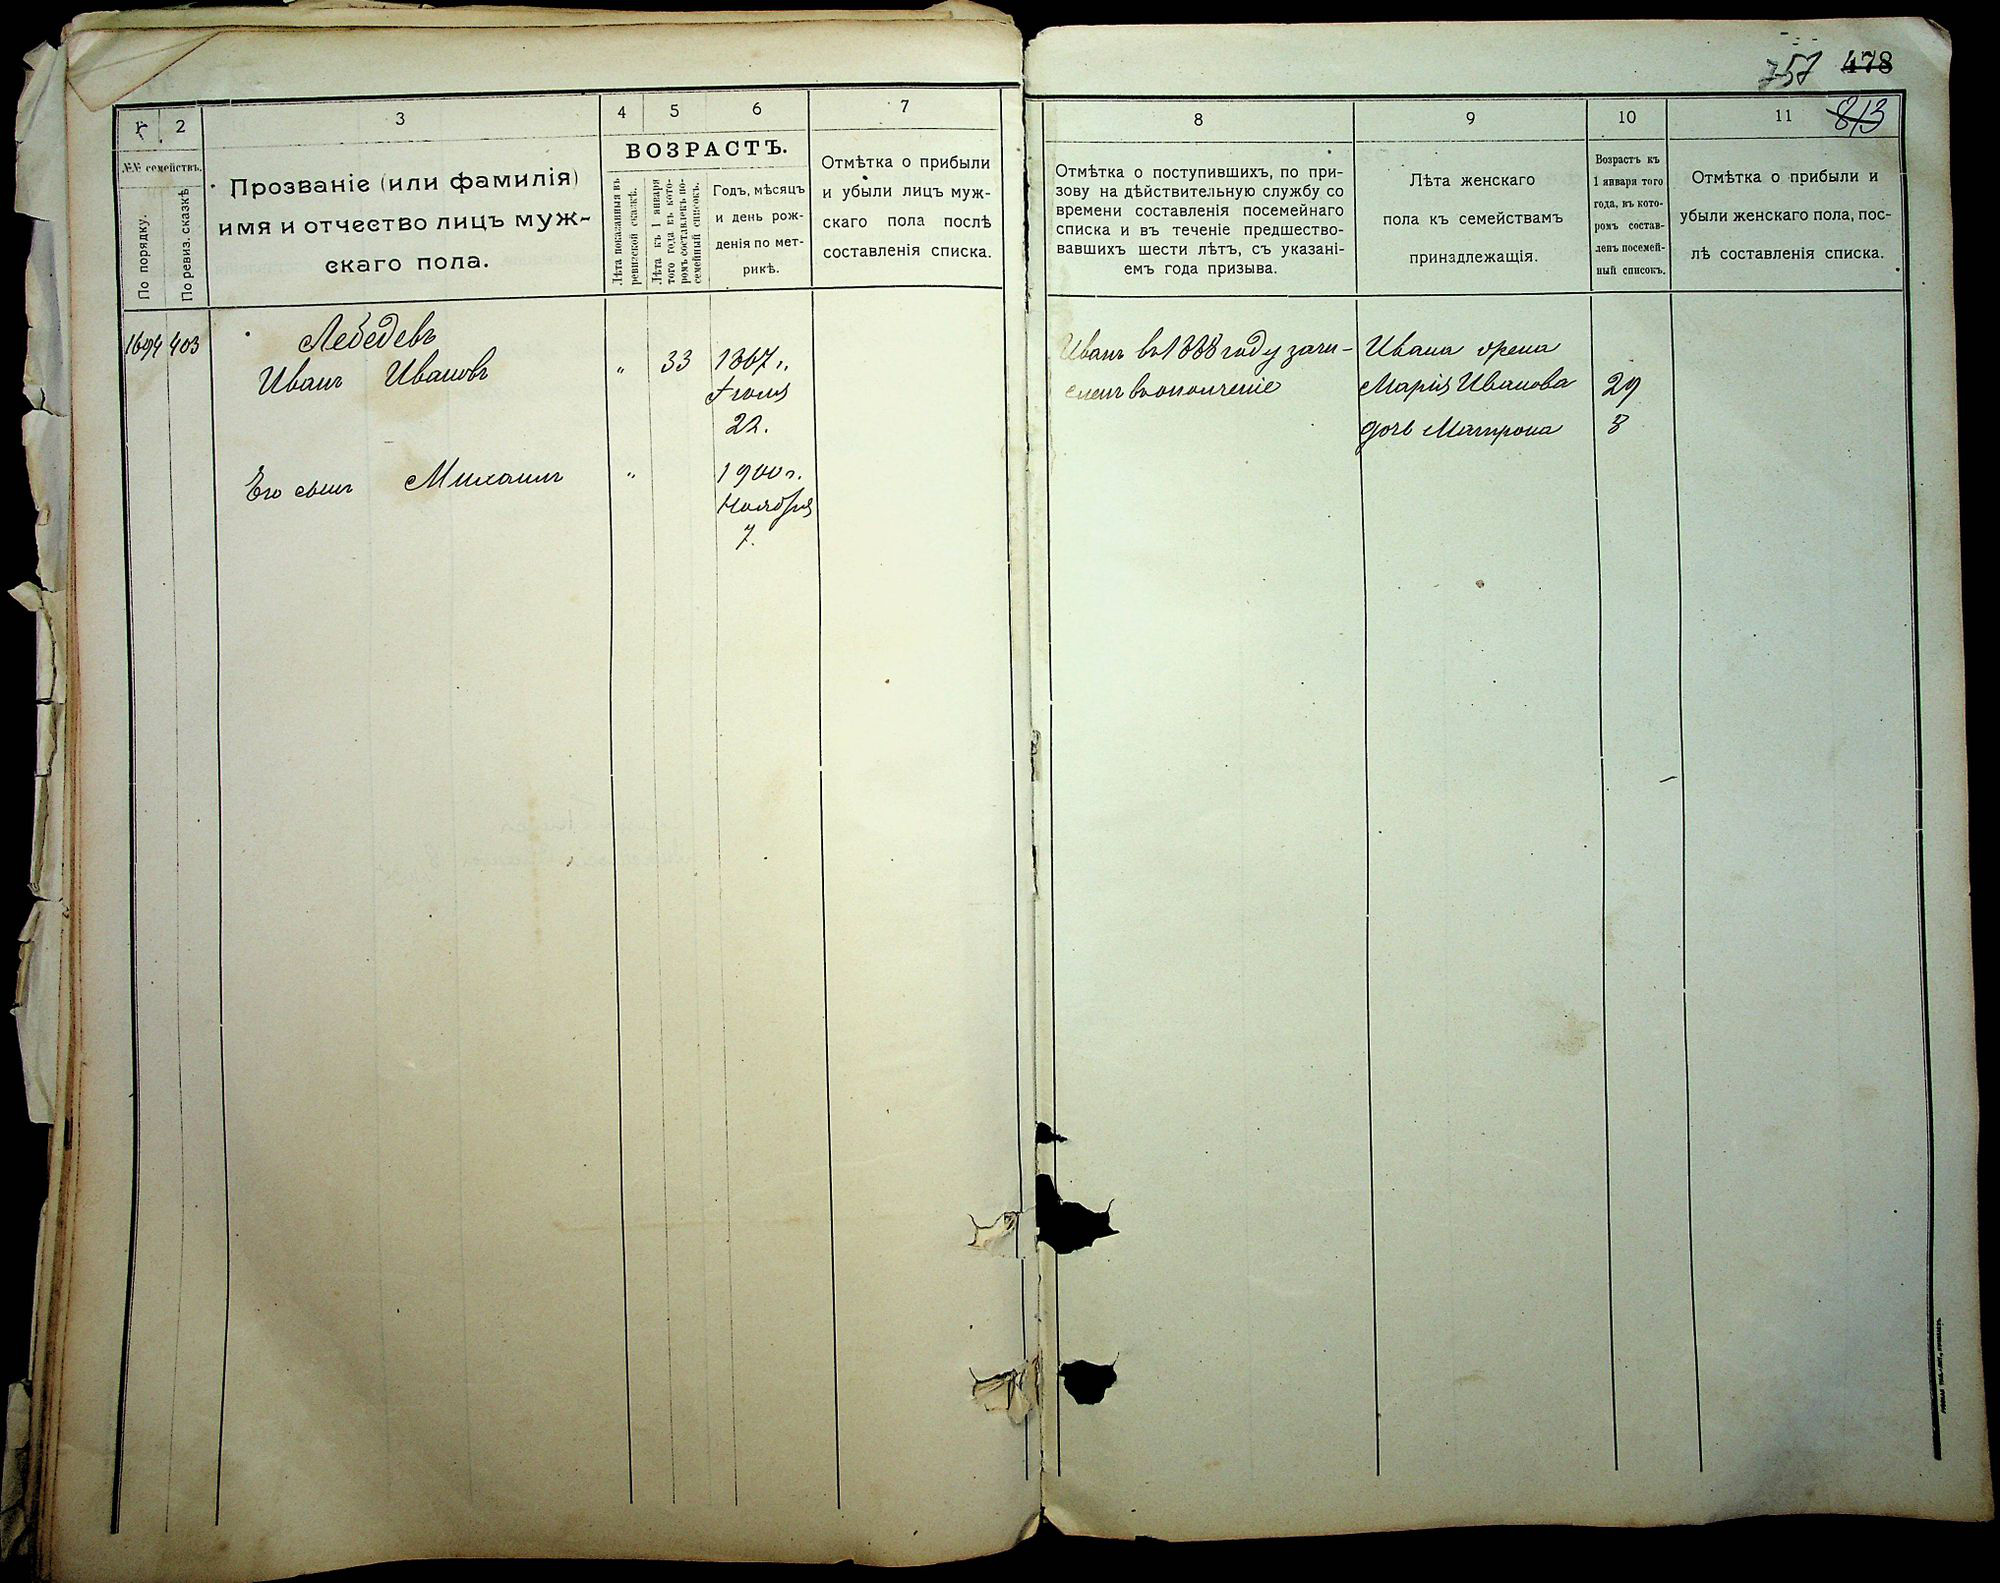 757 478
813
1 2 3 4 5 6 7
№№ семействъ.
По порядку.
По ревиз. сказкѣ
Прозваніе (или фамилія)
имя и отчество лицъ муж-
скаго пола.
ВОЗРАСТЪ.
Лѣта показанныя въ
ревизской сказкѣ.
Лѣта къ 1 января
того года въ кото-
ромъ составленъ по-
семейный списокъ.
Годъ, мѣсяцъ
и день рож-
денія по мет-
рикѣ.
Отмѣтка о прибыли
и убыли лицъ муж-
скаго пола послѣ
составленія списка.
1694 403 Лебедевъ
Иванъ Ивановъ „ 33 1867 г.
Іюня
22.
Его сынъ Михаилъ „ 1900 г.
Ноября
7.
8 9 10 11
Отмѣтка о поступившихъ, по при-
зову на дѣйствительную службу со
времени составленія посемейнаго
списка и въ теченіе предшество-
вавшихъ шести лѣтъ, съ указані-
емъ года призыва.
Лѣта женскаго
пола къ семействамъ
принадлежащія.
Возрастъ къ
1 января того
года, въ кото-
ромъ состав-
ленъ посемей-
ный списокъ.
Отмѣтка о прибыли и
убыли женскаго пола, пос-
лѣ составленія списка.
Иванъ въ 1888 году зачи-
сленъ въ ополченіе
Ивана жена
Марія Иванова 29
дочь Матрона 3